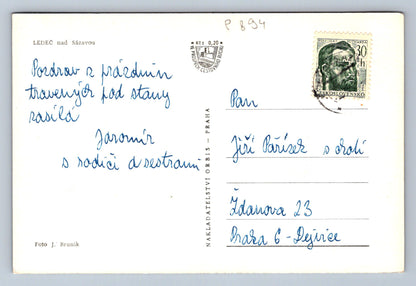 P 894
LEDEČ nad Sázavou
41 g 0,20
30 h
ČESKOSLOVENSKO
Pozdrav z prázdnin
travených pod stany
zasílá
Jaromír
s rodiči a sestrami
Pan
Jiří Pařízek s chotí
Ždanova 23
Praha 6 - Dejvice
NAKLADATELSTVÍ ORBIS - PRAHA
Foto J. Bruník